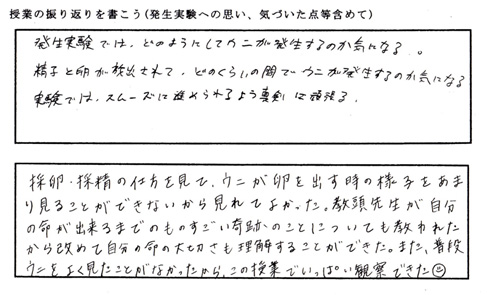 授業の振り返りを書こう(発生実験への思い、気づいた点等含めて)
発生実験では、どのようにしてウニが発生するのか気になる。
精子と卵が放出されて、どのくらいの間でウニが発生するのか気になる
実験では、スムーズに進められるよう真剣に頑張る。
採卵・採精の仕方を見て、ウニが卵を出す時の様子をあま
り見ることができないから見れてよかった。教頭先生が自分
の命が出来るまでのものすごい奇跡のことについても教われた
から改めて自分の命の大切さも理解することができた。また、普段
ウニをよく見たことがなかったから、この授業でいっぱい観察できた